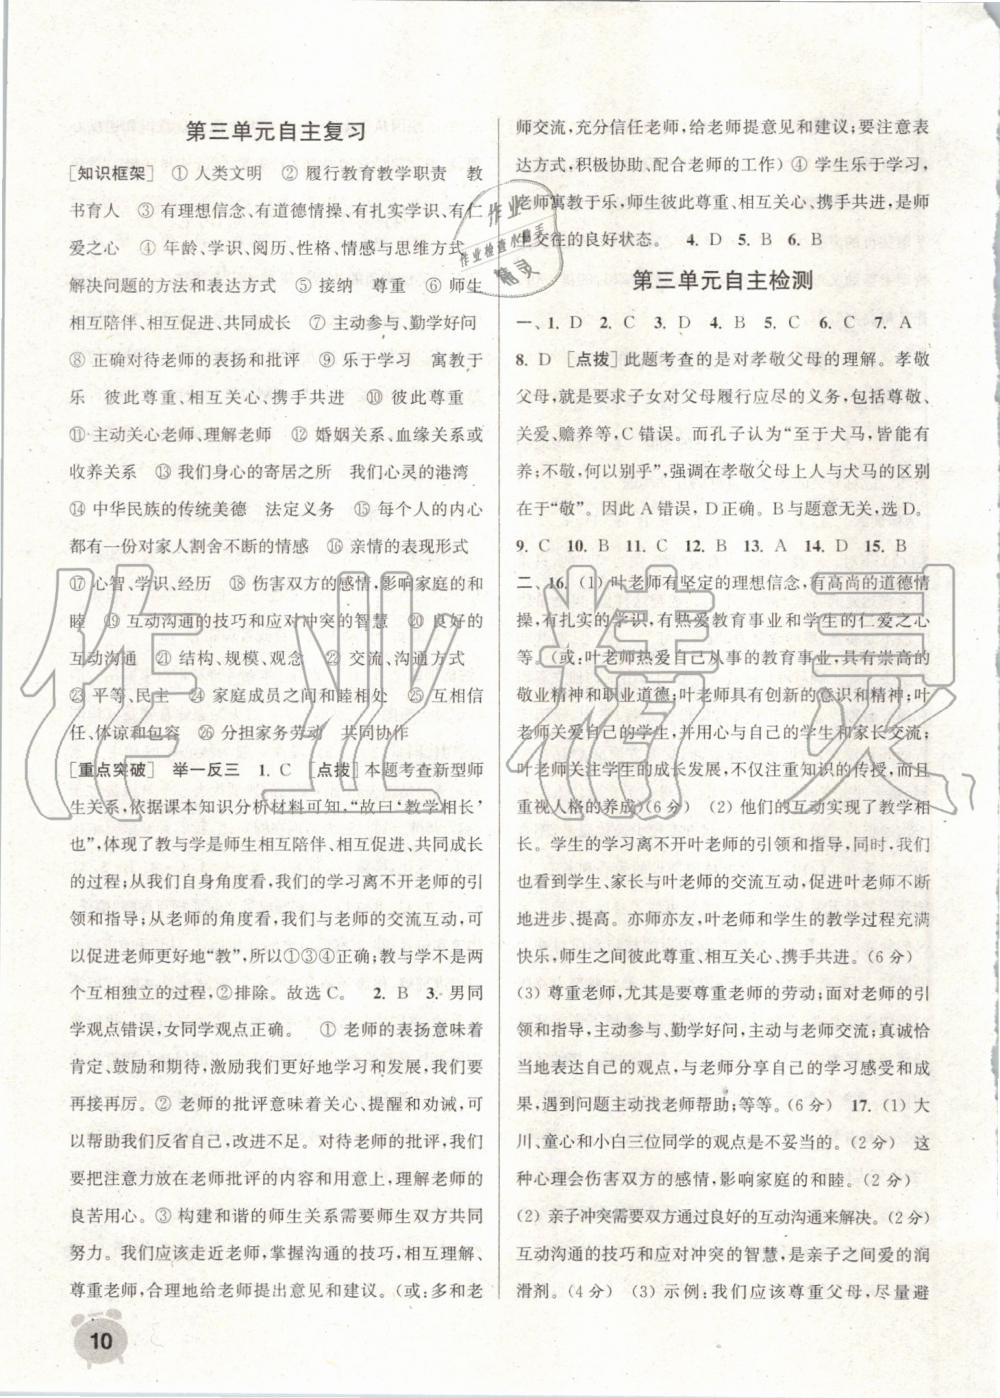 第三单元自主复习
[知识框架] ① 人类文明 ② 履行教育教学职责 教
书育人 ③ 有理想信念、有道德情操、有扎实学识、有仁
爱之心 ④ 年龄、学识、阅历、性格、情感与思维方式
解决问题的方法和表达方式 ⑤ 接纳 尊重 ⑥ 师生
相互陪伴、相互促进、共同成长 ⑦ 主动参与、勤学好问
⑧ 正确对待老师的表扬和批评 ⑨ 乐于学习 寓教于
乐 彼此尊重、相互关心、携手共进 ⑩ 彼此尊重
⑪ 主动关心老师、理解老师 ⑫ 婚姻关系、血缘关系或
收养关系 ⑬ 我们身心的寄居之所 我们心灵的港湾
⑭ 中华民族的传统美德 法定义务 ⑮ 每个人的内心
都有一份对家人割舍不断的情感 ⑯ 亲情的表现形式
⑰ 心智、学识、经历 ⑱ 伤害双方的感情,影响家庭的和
睦 ⑲ 互动沟通的技巧和应对冲突的智慧 ⑳ 良好的
互动沟通 ㉑ 结构、规模、观念 ㉒ 交流、沟通方式
㉓ 平等、民主 ㉔ 家庭成员之间和睦相处 ㉕ 互相信
任、体谅和包容 ㉖ 分担家务劳动 共同协作
[重点突破] 举一反三 1. C [点拨] 本题考查新型师
生关系,依据课本知识分析材料可知,“故曰‘教学相长’
也”,体现了教与学是师生相互陪伴、相互促进、共同成长
的过程;从我们自身角度看,我们的学习离不开老师的引
领和指导;从老师的角度看,我们与老师的交流互动,可
以促进老师更好地“教”,所以①③④正确;教与学不是两
个互相独立的过程,②排除。故选 C。 2. B 3. 男同
学观点错误,女同学观点正确。 ① 老师的表扬意味着
肯定、鼓励和期待,激励我们更好地学习和发展,我们要
再接再厉。② 老师的批评意味着关心、提醒和劝诫,可
以帮助我们反省自己,改进不足。对待老师的批评,我们
要把注意力放在老师批评的内容和用心上,理解老师的
良苦用心。③ 构建和谐的师生关系需要师生双方共同
努力。我们应该走近老师,掌握沟通的技巧,相互理解、
尊重老师,合理地给老师提出意见和建议。(或:多和老
师交流,充分信任老师,给老师提意见和建议;要注意表
达方式,积极协助、配合老师的工作) ④ 学生乐于学习,
老师寓教于乐,师生彼此尊重、相互关心、携手共进,是师
生交往的良好状态。 4. D 5. B 6. B
第三单元自主检测
一、1. D 2. C 3. D 4. B 5. C 6. C 7. A
8. D [点拨] 此题考查的是对孝敬父母的理解。孝敬
父母,就是要求子女对父母履行应尽的义务,包括尊敬、
关爱、赡养等,C 错误。而孔子认为“至于犬马,皆能有
养;不敬,何以别乎”,强调在孝敬父母上人与犬马的区别
在于“敬”。因此 A 错误,D 正确。B 与题意无关,选 D。
9. C 10. B 11. C 12. B 13. A 14. D 15. B
二、16. (1) 叶老师有坚定的理想信念,有高尚的道德情
操,有扎实的学识,有热爱教育事业和学生的仁爱之心
等。(或:叶老师热爱自己从事的教育事业,具有崇高的
敬业精神和职业道德;叶老师具有创新的意识和精神;叶
老师关爱自己的学生,并与学生和家长交流;
叶老师关注学生的发展,不仅注重知识的传授,而且
重视人格的养成)(6 分) (2) 他们的互动实现了教学相
长。学生的学习离不开叶老师的引领和指导,同时,我们
也看到学生、家长与叶老师的交流互动,促进叶老师不断
地进步、提高。亦师亦友,叶老师和学生的教学过程充满
快乐,师生之间彼此尊重、相互关心、携手共进。(6 分)
(3) 尊重老师,尤其是要尊重老师的劳动;面对老师的引
领和指导,主动参与、勤学好问,主动与老师交流;真诚恰
当地表达自己的观点,与老师分享自己的学习感受和成
果,遇到问题主动找老师帮助;等等。(6 分) 17. (1) 大
川、童心和小白三位同学的观点是不妥当的。(2 分) 这
种心理会伤害双方的感情,影响家庭的和睦。(2 分)
(2) 亲子冲突需要双方通过良好的互动沟通来解决。(2 分)
互动沟通的技巧和应对冲突的智慧,是亲子之间爱的润
滑剂。(4 分) (3) 示例:我们应该尊重父母,尽量避
10
作业
作业检查小帮手
精灵
作业精灵